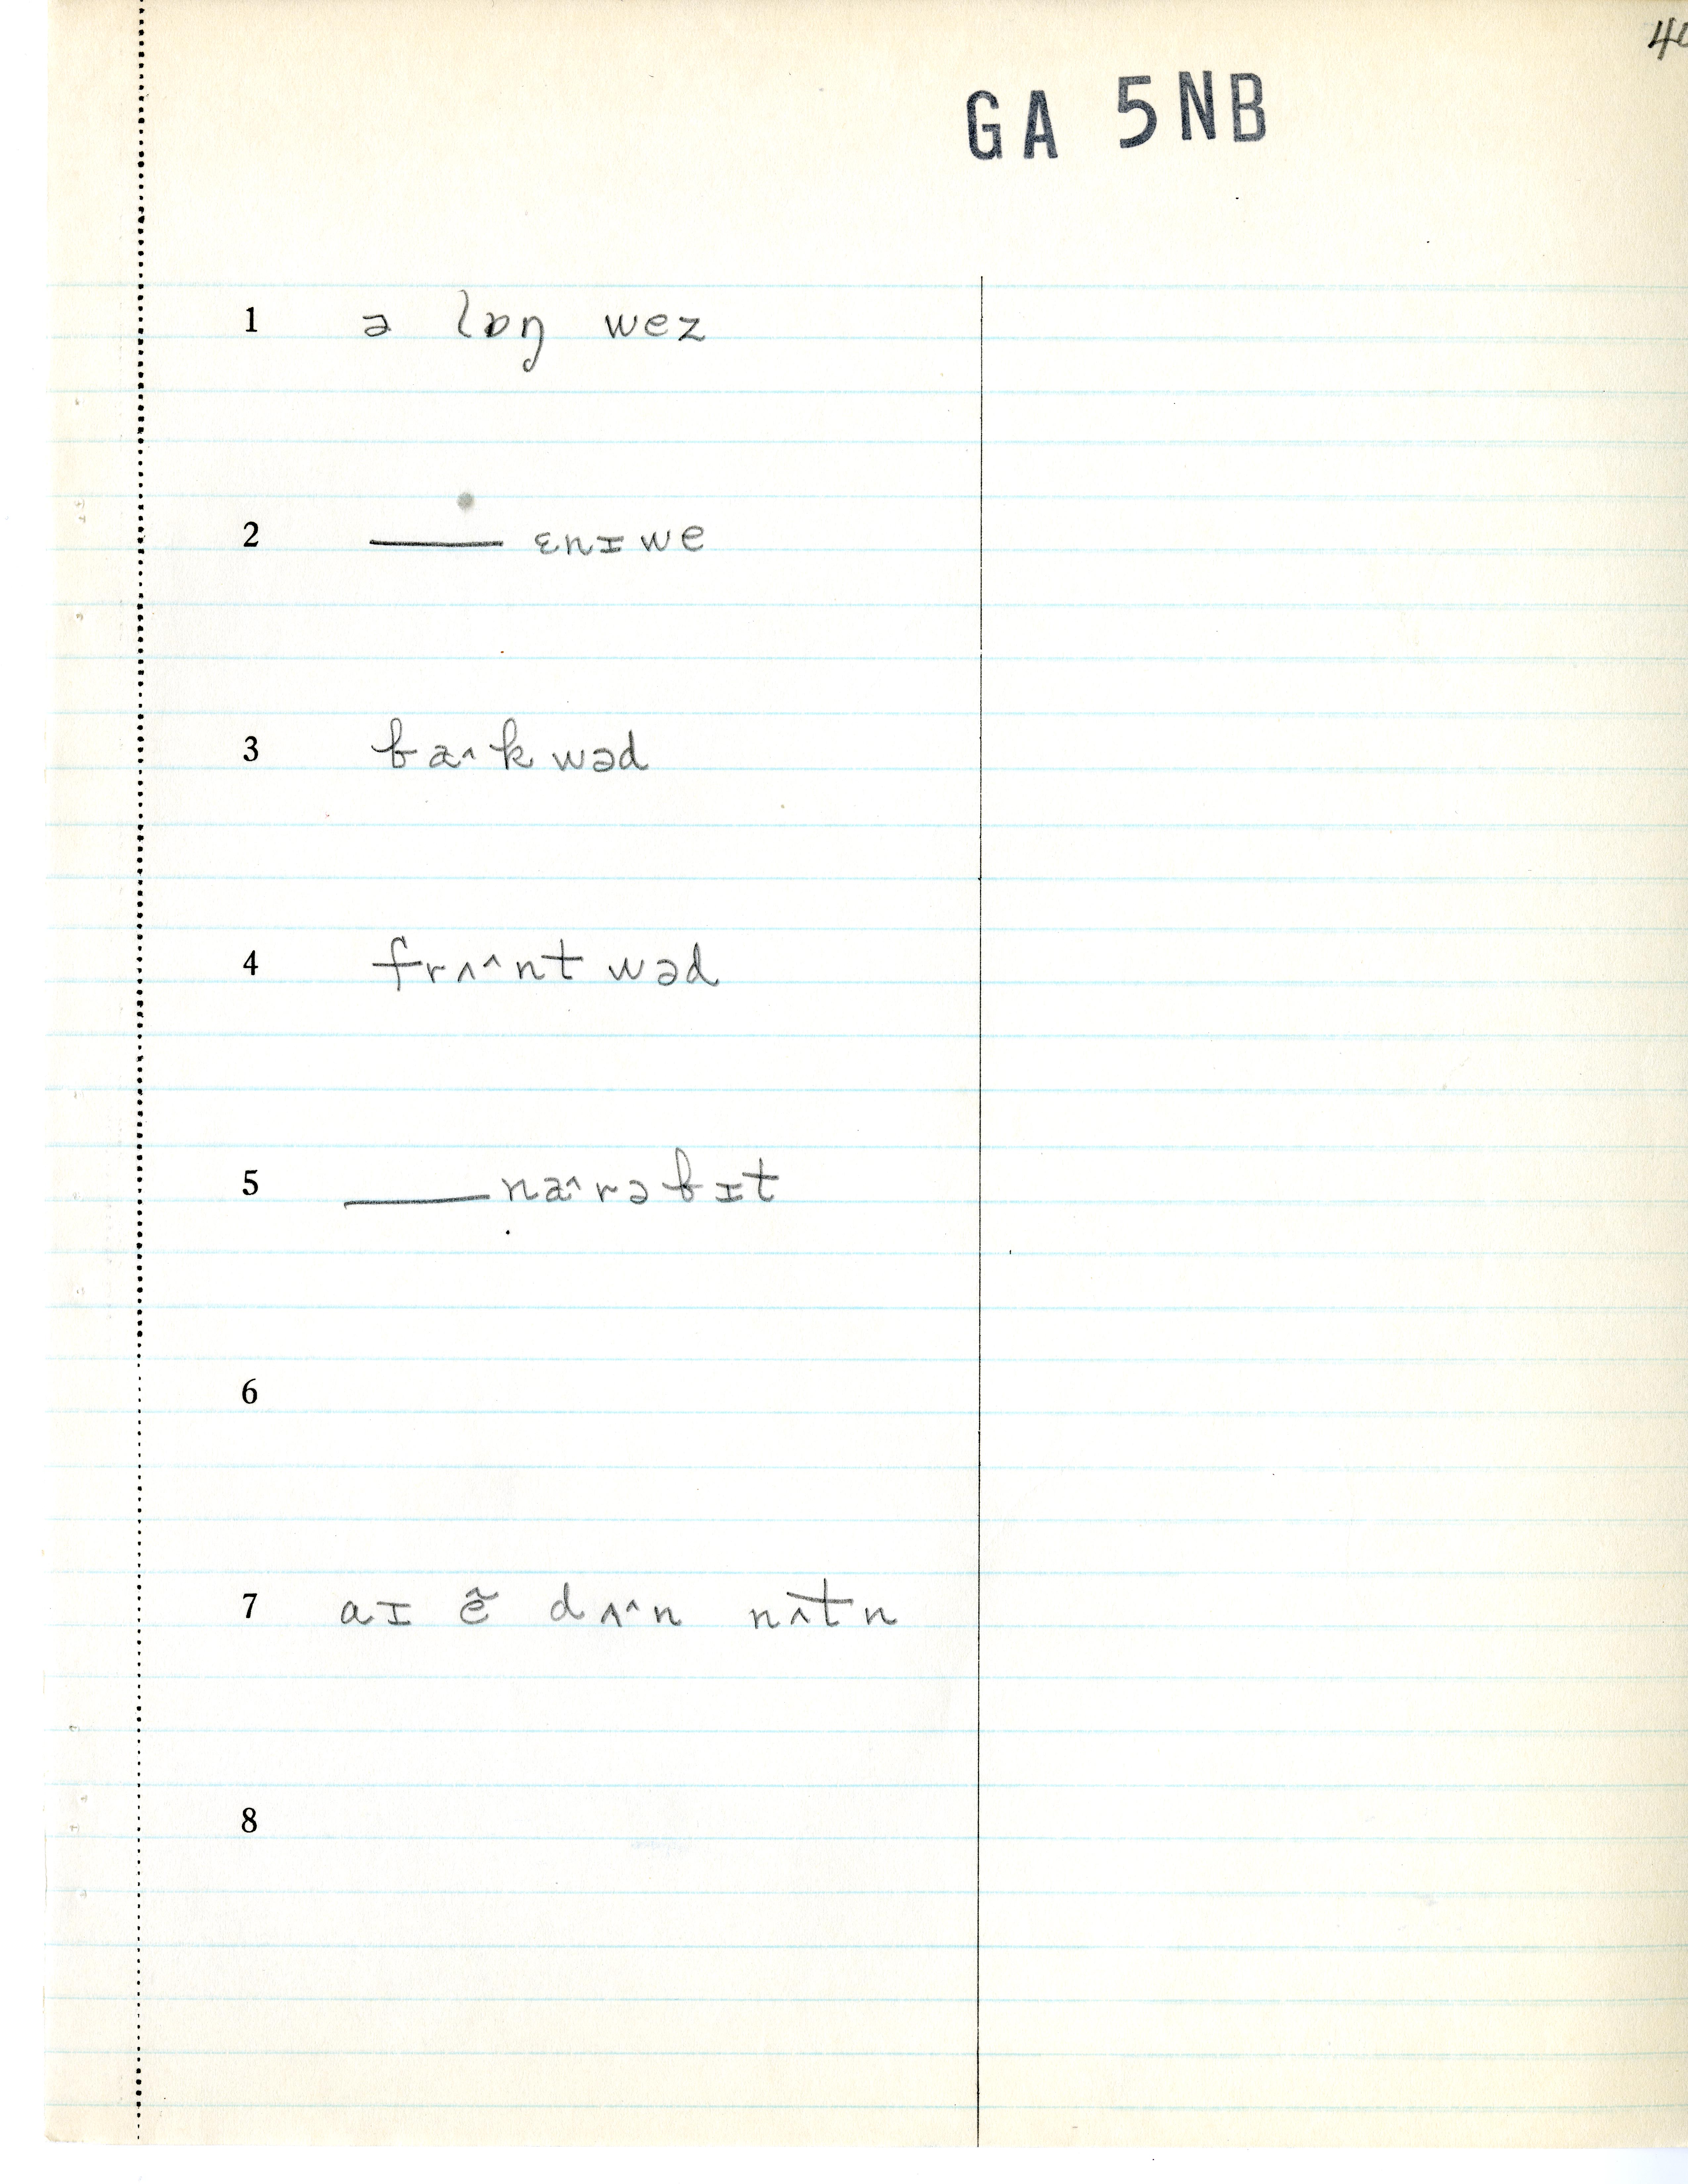 GA 5NB
1 ə lɒŋ wez
2 —— ɛnɪwe
3 ba^kwəd
4 frʌ^^nt wəd
5 —— na^rəbɪt
6
7 aɪ ẽ dʌ^^n nʌtn
8